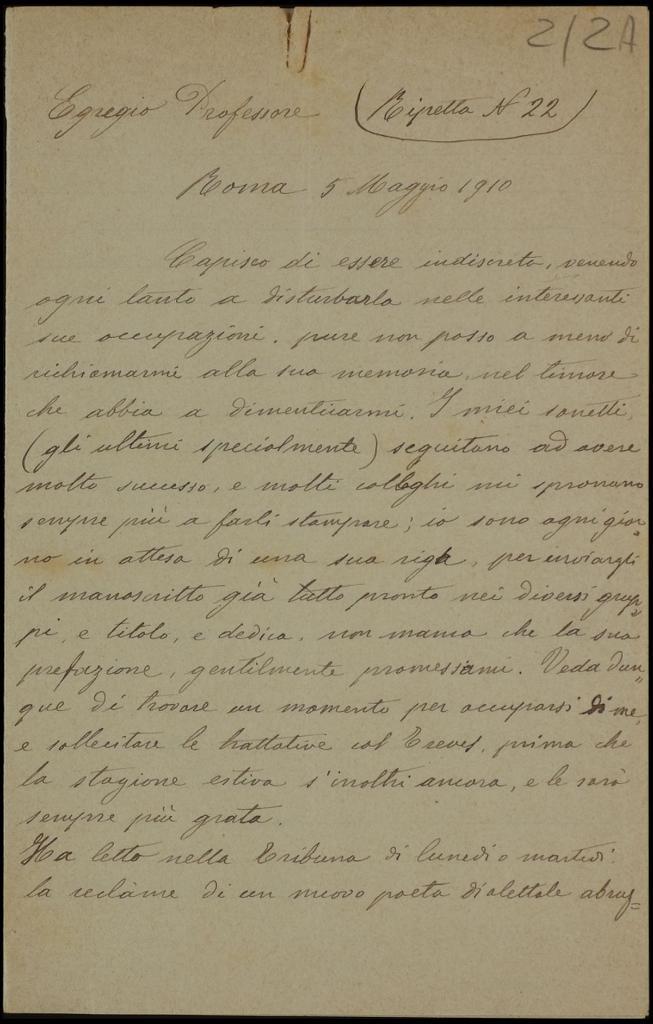 2/2A
Egregio Professore (Ripetta N 22)
Roma 5 Maggio 1910
Capisco di essere indiscreta, venendo
ogni tanto a disturbarla nelle interessanti
sue occupazioni. pure non posso a meno di
richiamarmi alla sua memoria, nel timore
che abbia a dimenticarmi. I miei sonetti,
(gli ultimi specialmente) seguitano ad avere
molto successo, e molti colleghi mi spronano
sempre più a farli stampare; io sono ogni gior„
no in attesa di una sua riga, per inviargli
il manoscritto già tutto pronto nei diversi grup„
pi, e titolo, e dedica, non manca che la sua
prefazione, gentilmente promessami. Veda dun„
que di trovare un momento per occuparsi di me,
e sollecitare le trattative col Treves, prima che
la stagione estiva s'inoltri ancora, e le sarò
sempre più grata.
Ha letto nella Tribuna di lunedì o martedì
la reclàme di un nuovo poeta dialettale abruz=